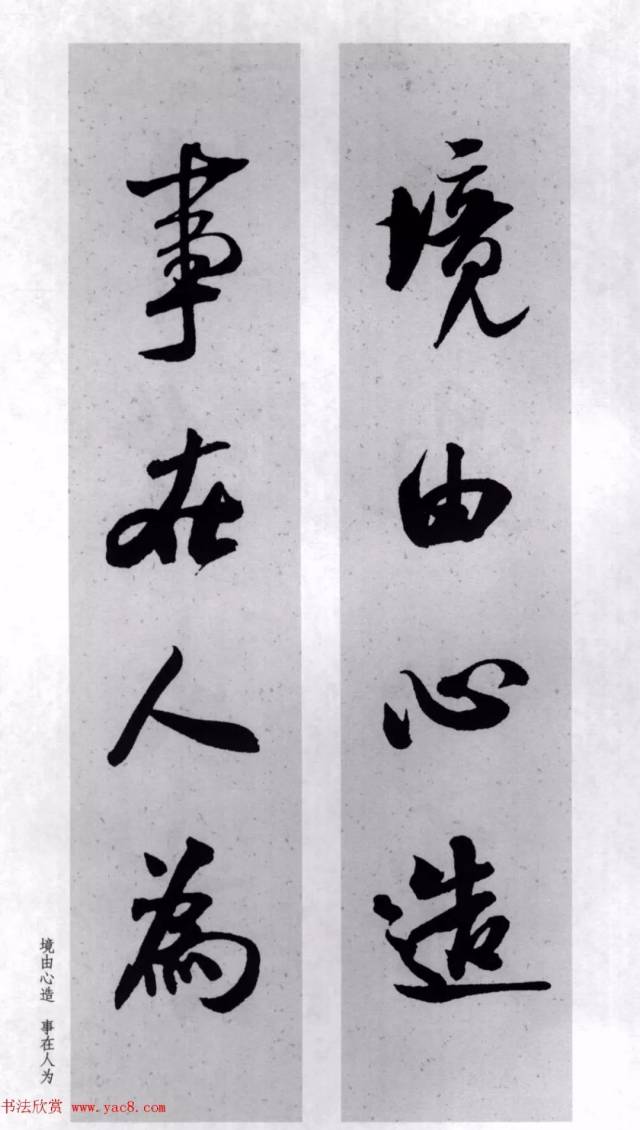 境由心造
事在人為
境由心造 事在人为
书法欣赏 www.yac8.com